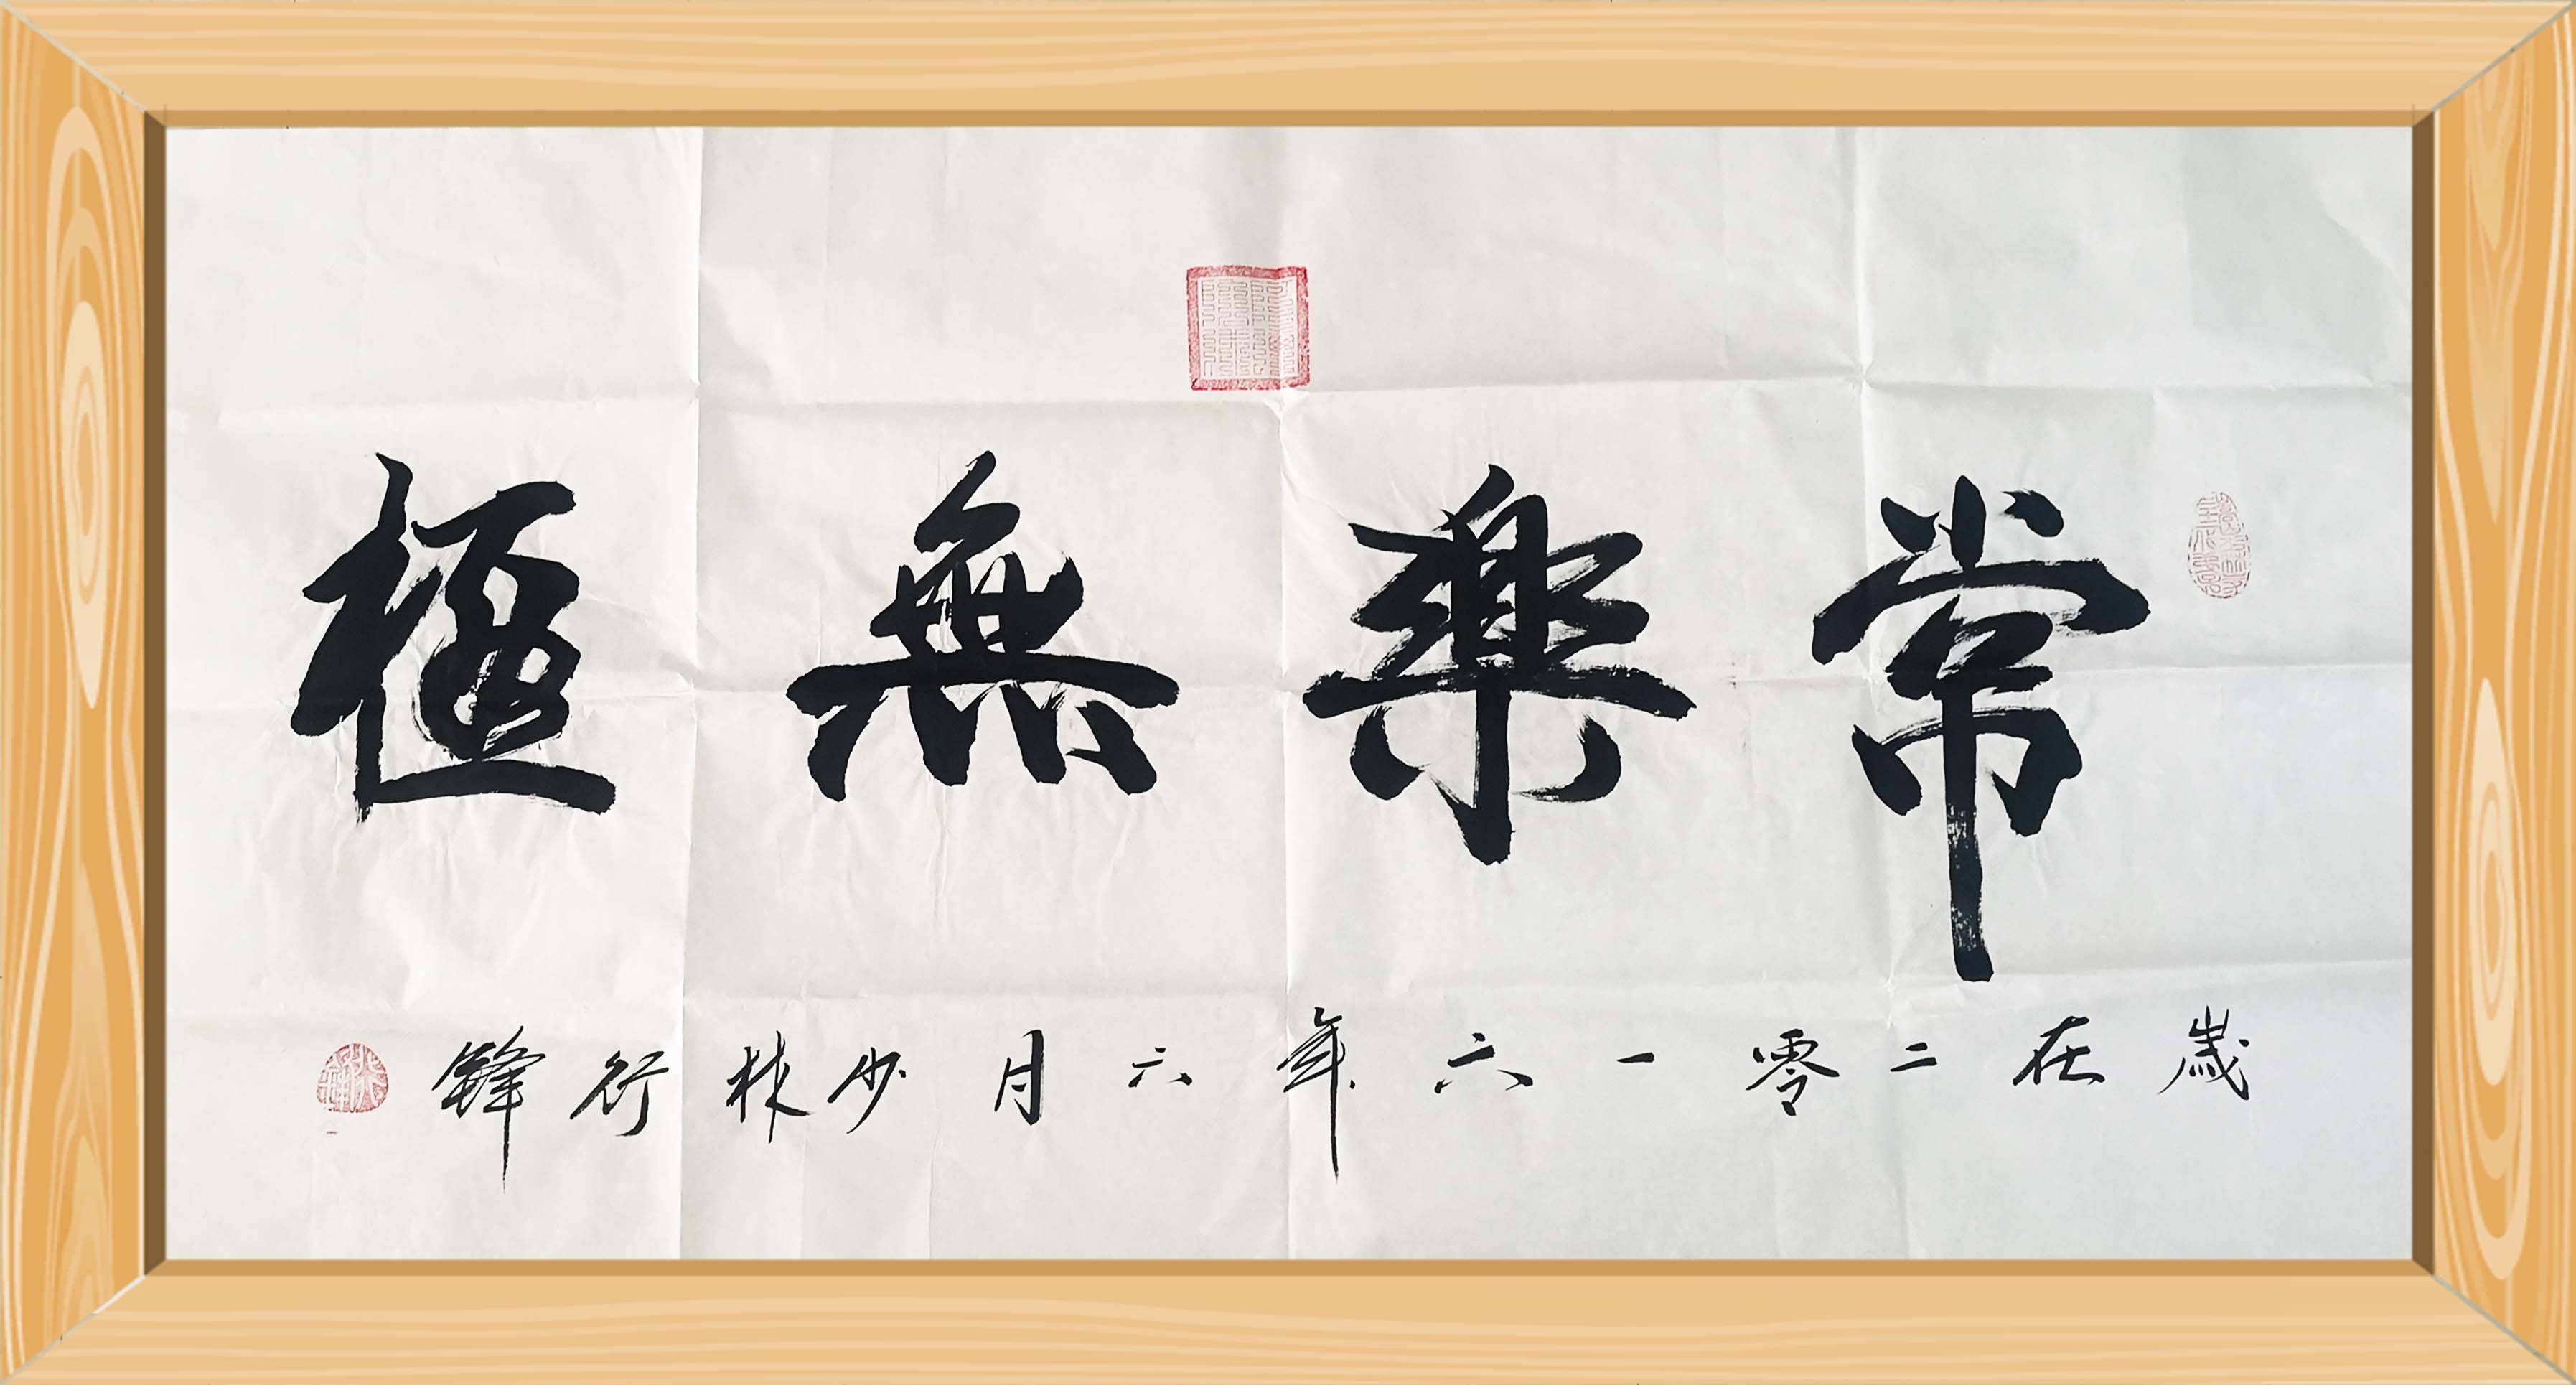 常樂無極
歲在二零一六年六月少林行鋒